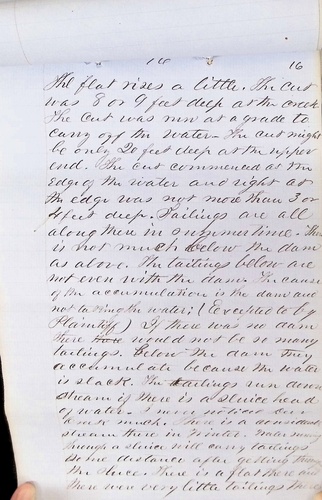 16
The flat rises a little. The cut
was 8 or 9 feet deep at the creek
The cut was run at a grade to
carry off the water - The cut might
be only 20 feet deep at the upper
end. The cut commenced at the
edge of the water and right at
the edge was not more than 3 or
4 feet deep. Tailings are all
along there in summertime - There
is not much below the dam
as above. The tailings below are
not even with the dam. The cause
of the accumulation is the dam and
not taking the water; (excepted to by
Plaintiff) If there was no dam
there would not be so many
tailings. Below the dam they
accumulate because the water
is slack. The tailings run down
stream if there is a sluice head
of water. I never noticed
much. There is a considerable
stream there in winter. Water running
through a sluice will carry tailings
some distance after getting through
the sluice. There is a flat there and
there were very little tailings there